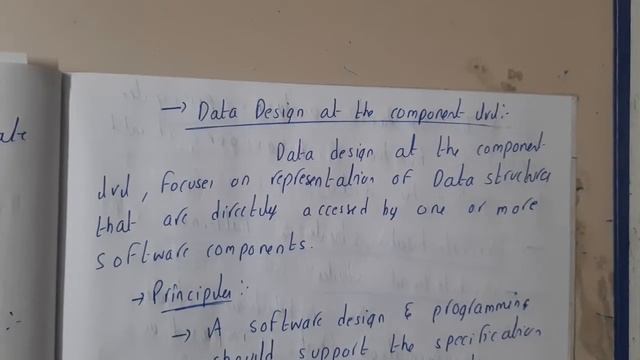 → Data Design at the component lvl:-
Data design at the component
lvl, focuses on representation of Data structures
that are directly accessed by one or more
software components.
→ Principles:-
→ A software design & programming
should support the specification